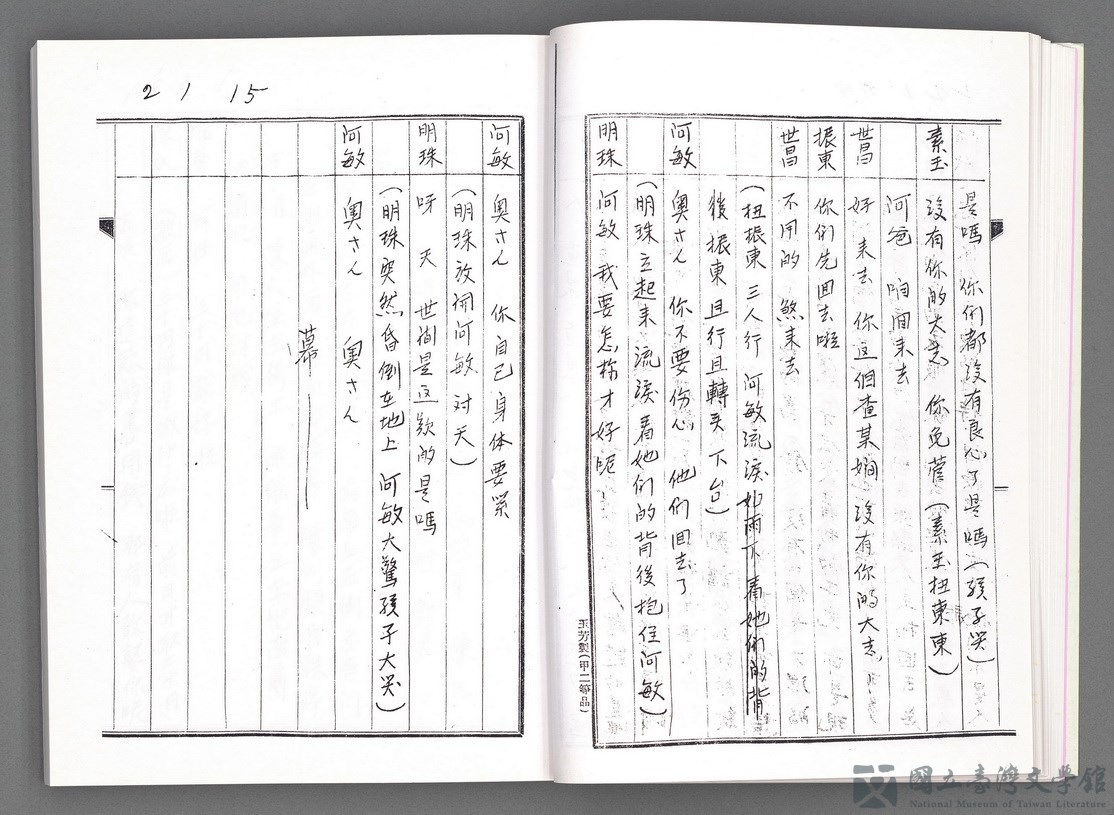 是嗎 你们都沒有良心了是嗎（孩子哭）
素玉 沒有你的大志 你免管（素玉扭東東）
阿爸 咱囬来去
世昌 好 来去 你这個查某嫺 沒有你的大志
振東 你们先囬去啦
世昌 不用的 煞来去
（扭振東 三人行 阿敏流淚如雨下 看她们的背
後 振東 且行且轉 下台）
阿敏 奥さん 你不要伤心 他们囬去了
（明珠立起来 流淚看她们的背後抱住阿敏）
明珠 阿敏 我要怎樣才好呢！
玉芳製（甲二等品）
2 1 15
阿敏 奥さん 你自己身体要紧
（明珠放開阿敏 对天）
明珠 呀 天 世間是这款的是嗎
（明珠突然昏倒在地上 阿敏大驚孩子大哭）
阿敏 奥さん 奥さん
幕
國立臺灣文學館
National Museum of Taiwan Literature